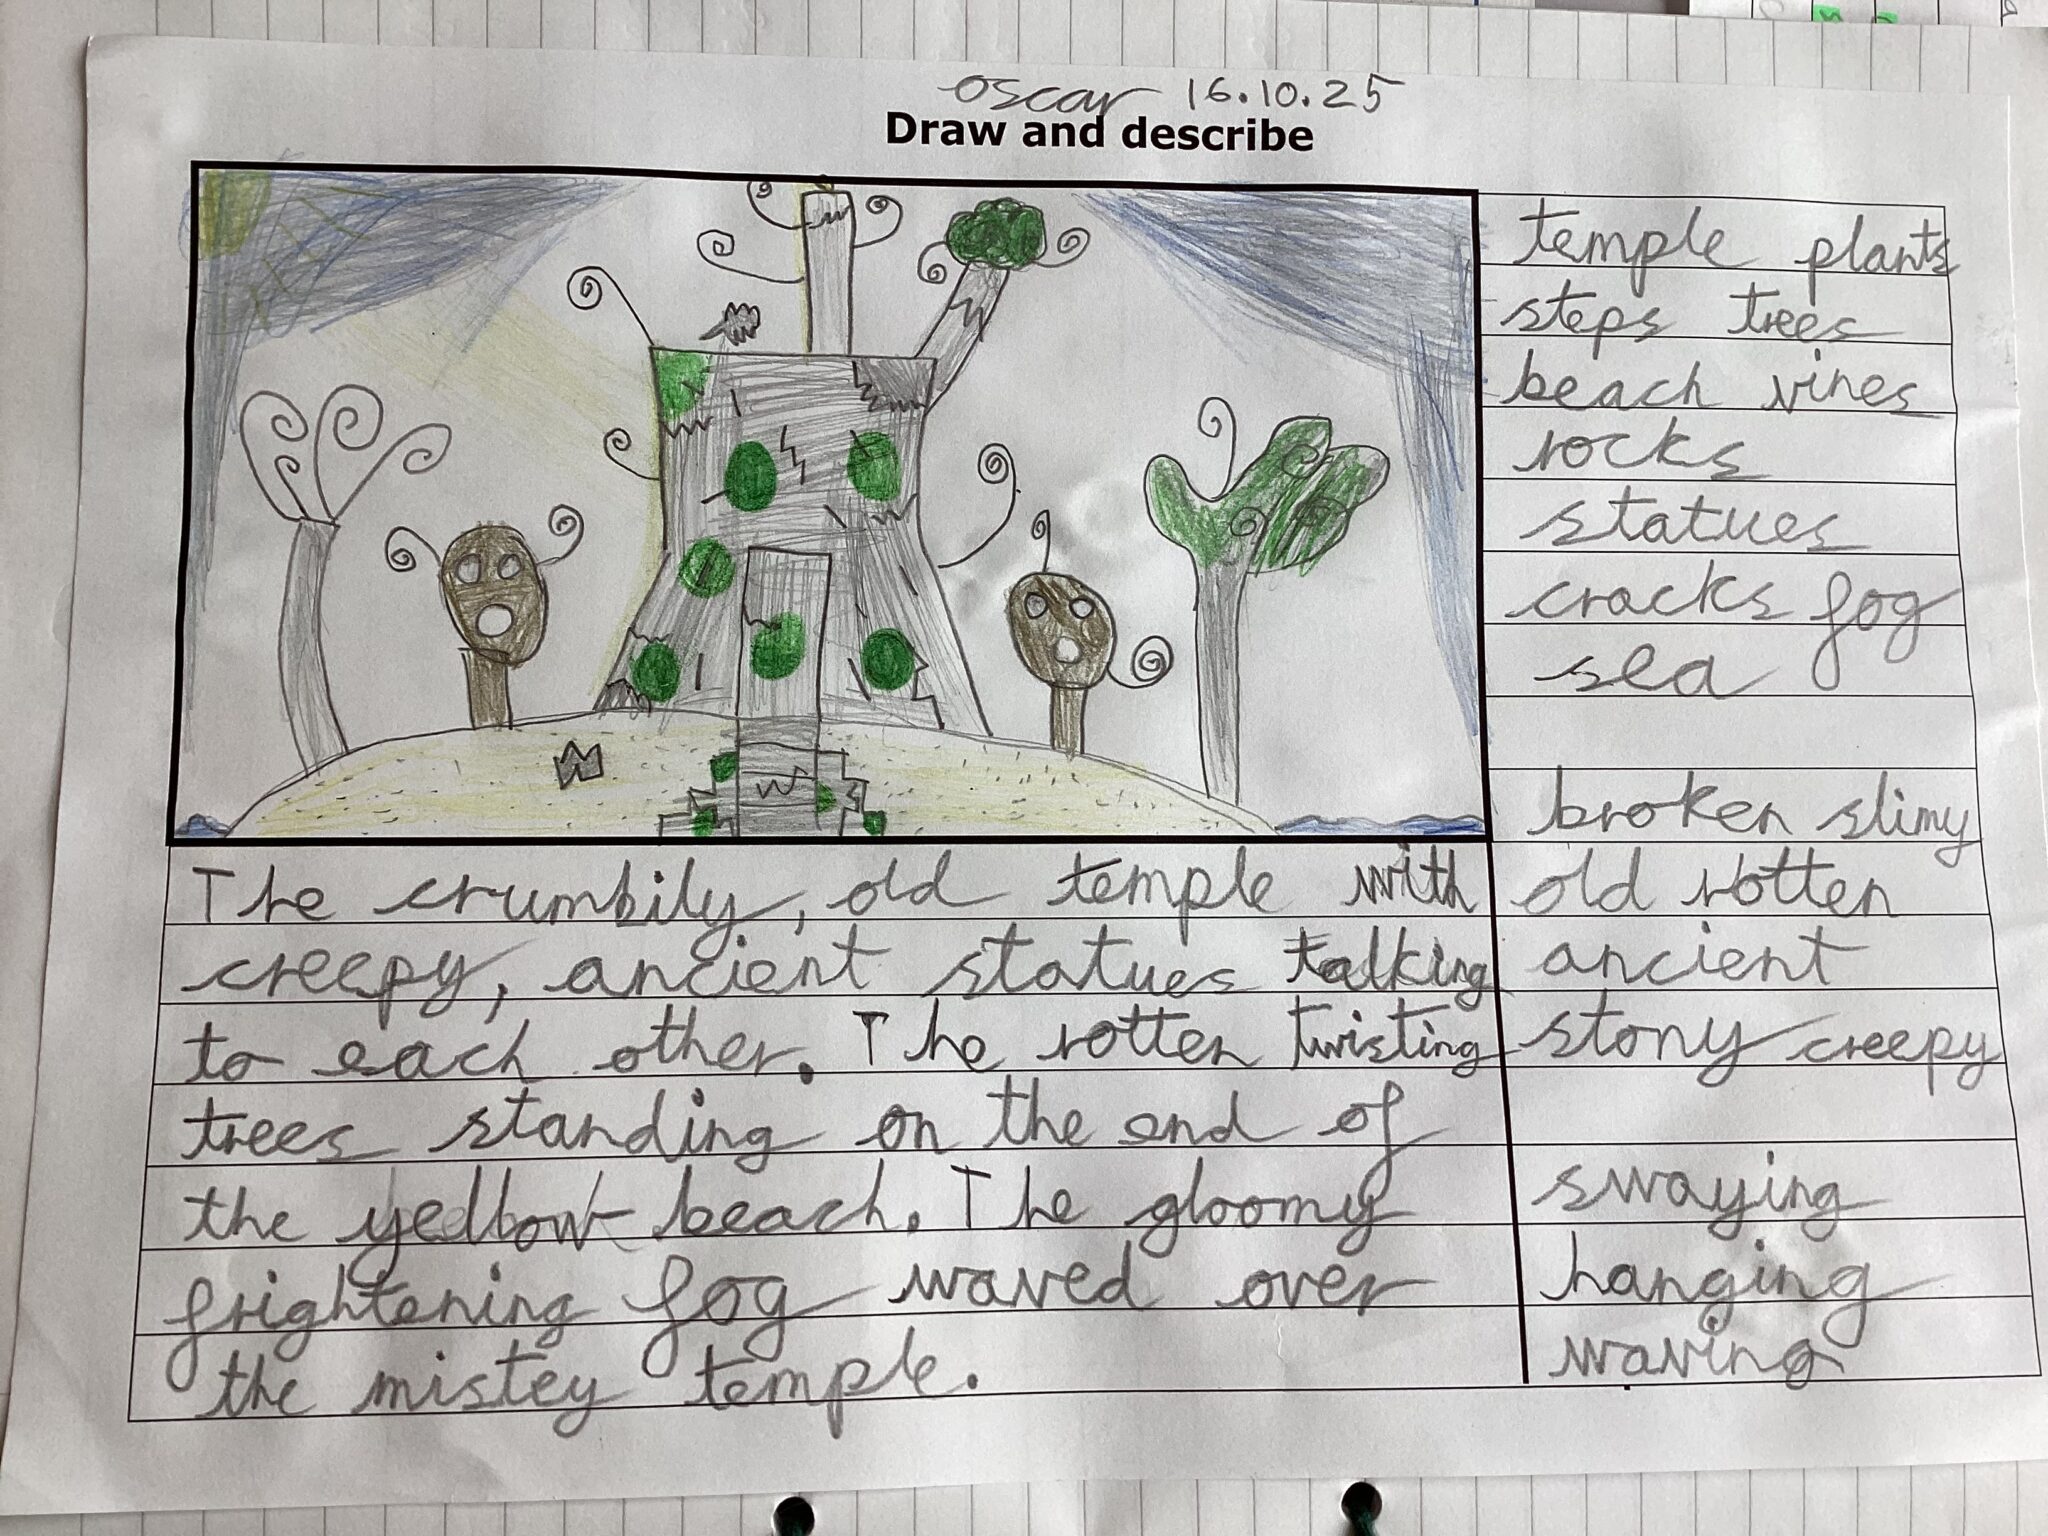 oscar 16.10.25
Draw and describe
temple plants
steps trees
beach vines
rocks
statues
cracks fog
sea
broken slimy
old rotten
ancient
stony creepy
swaying
hanging
waving
The crumbily, old temple with
creepy, ancient statues talking
to each other. The rotten twisting
trees standing on the end of
the yellow beach. The gloomy
frightening fog waved over
the mistey temple.